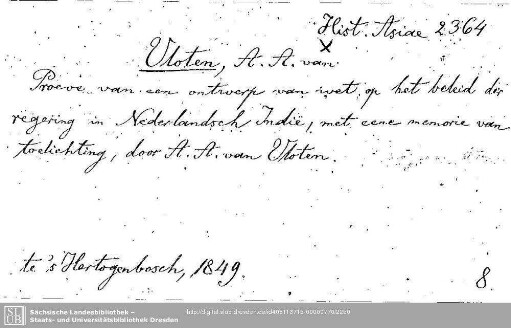 Hist. Asiae 2364
x
Vloten, A. A. van
Proeve van een ontwerp van wet op het beleid der
regering in Nederlandsch Indië, met eene memorie van
toelichting, door A. A. van Vloten.
te 's Hertogenbosch, 1849.
8
SLUB
Sächsische Landesbibliothek –
Staats- und Universitätsbibliothek Dresden